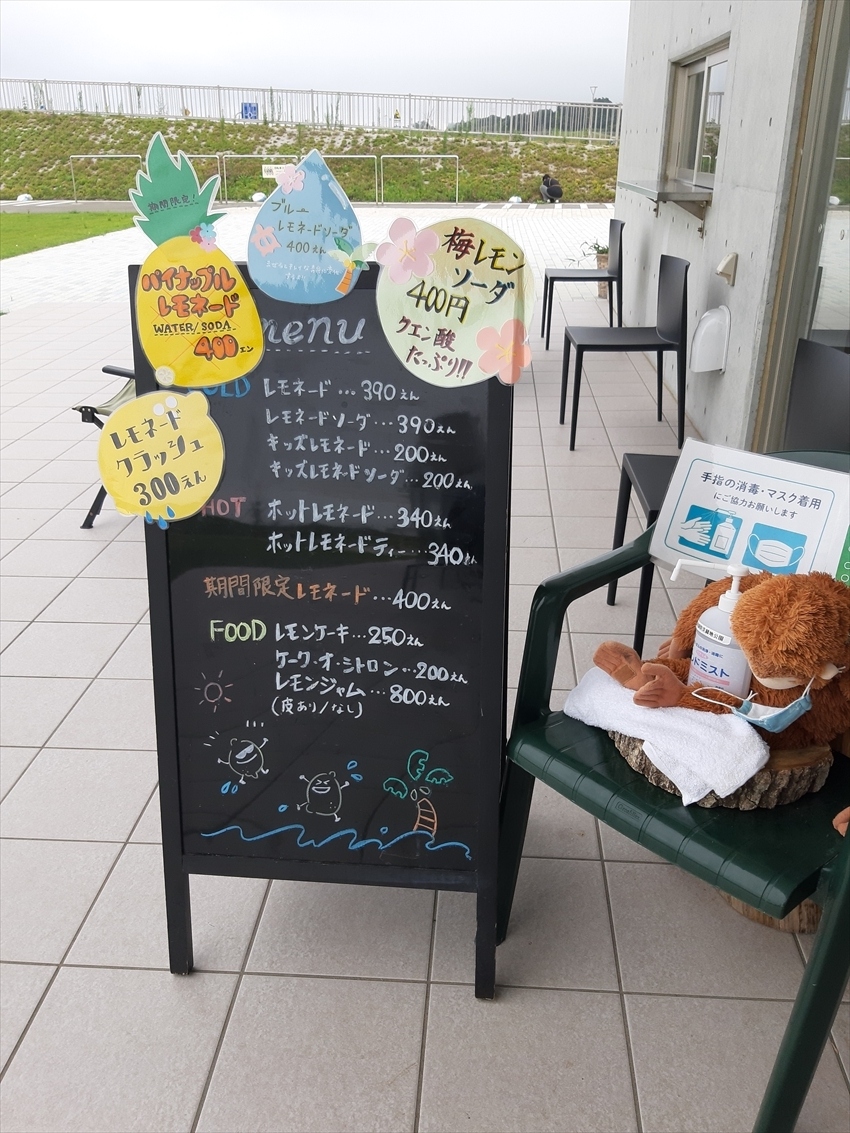 期間限定!
パイナップル
レモネード
WATER/SODA
400エン
ブルー
レモネードソーダ
400えん
梅レモン
ソーダ
400円
クエン酸
たっぷり!!
レモネード
クラッシュ
300えん
menu
COLD レモネード…390えん
レモネードソーダ…390えん
キッズレモネード…200えん
キッズレモネードソーダ…200えん
HOT ホットレモネード…340えん
ホットレモネードティー…340えん
期間限定レモネード…400えん
FOOD レモンケーキ…250えん
ケーク・オ・シトロン…200えん
レモンジャム…800えん
(皮あり/なし)
手指の消毒・マスク着用
にご協力お願いします